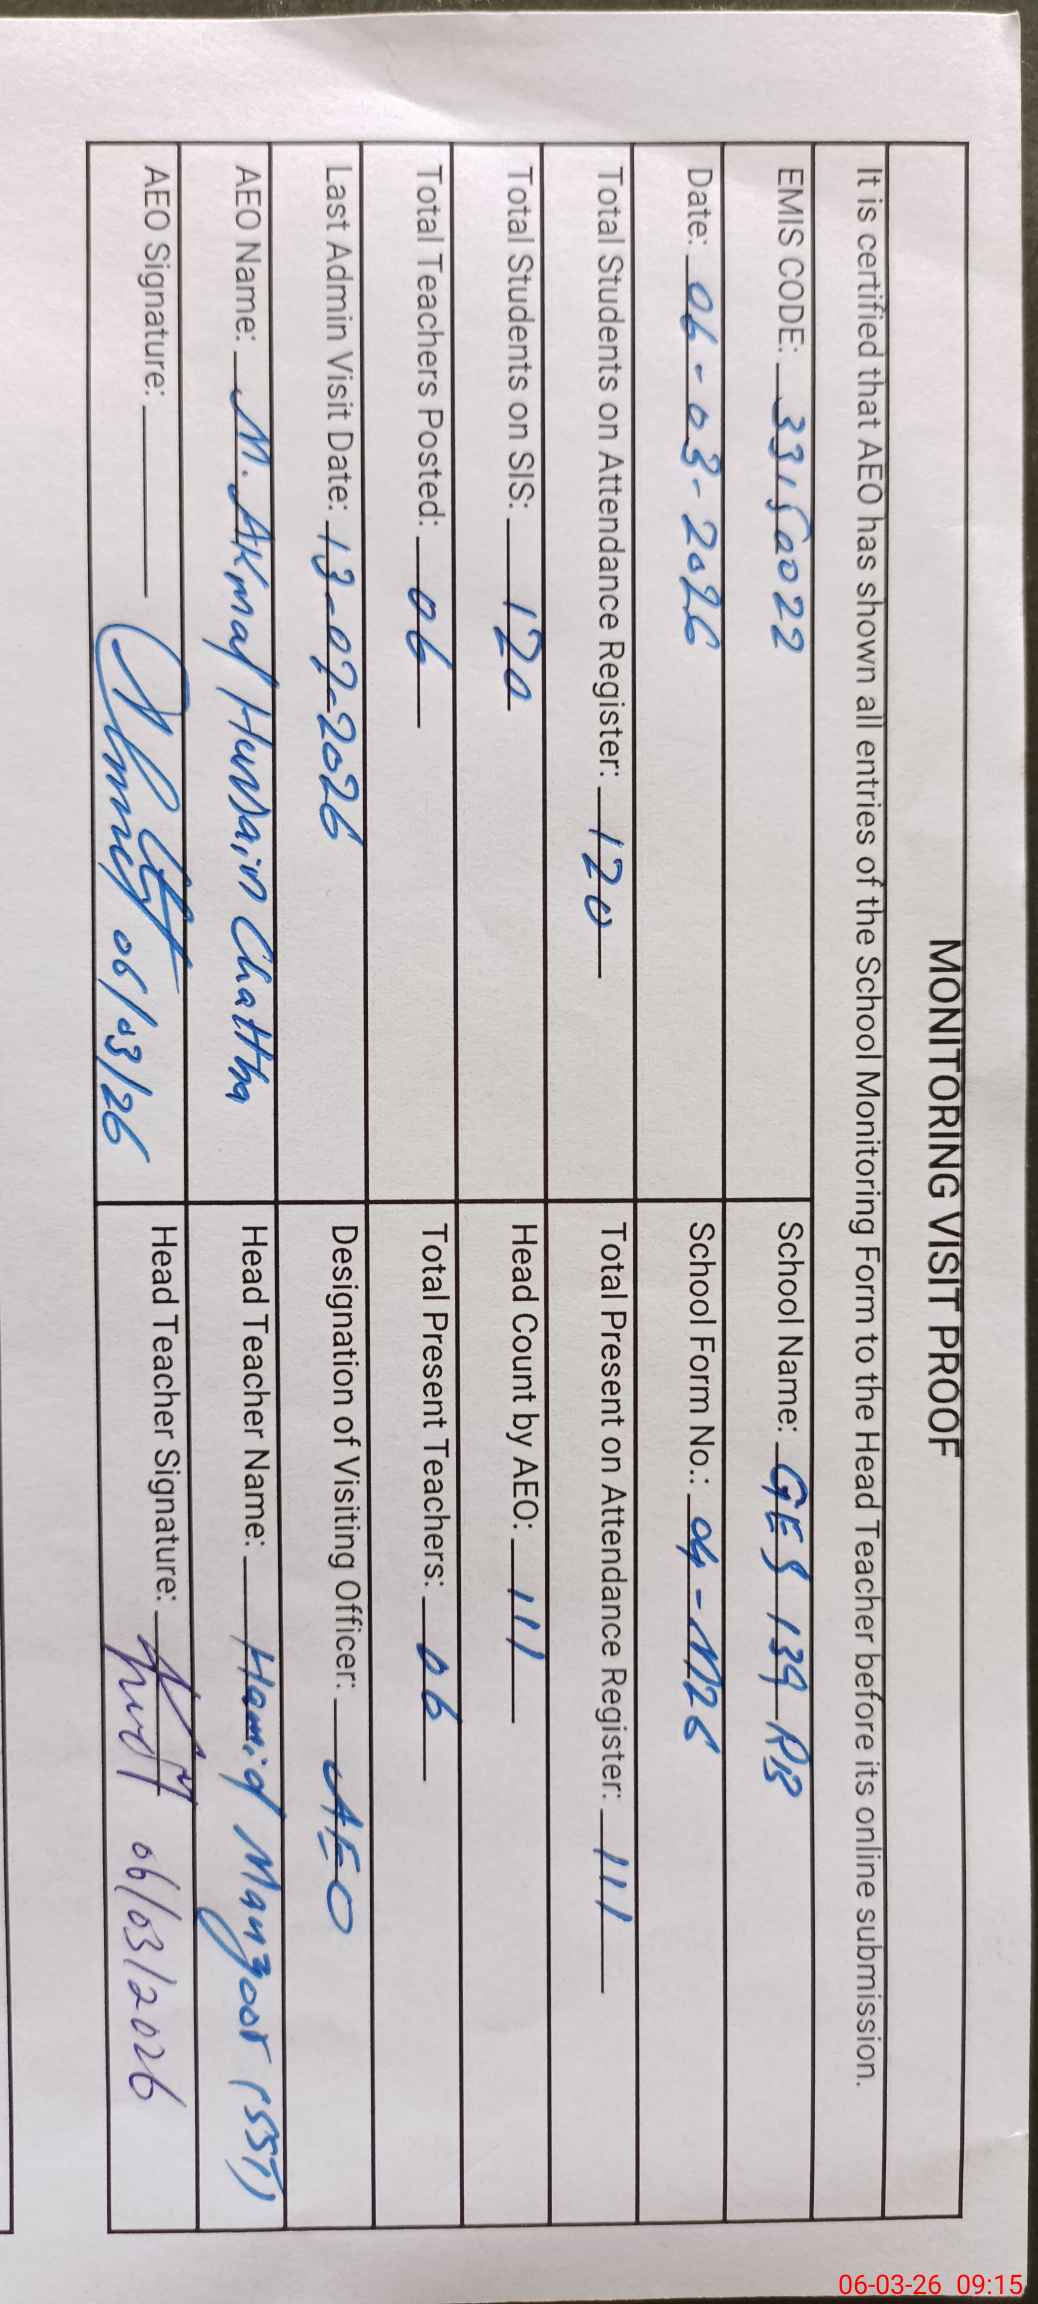 MONITORING VISIT PROOF
It is certified that AEO has shown all entries of the School Monitoring Form to the Head Teacher before its online submission.
EMIS CODE: 33150022
School Name: GES 139 RB
Date: 06-03-2026
School Form No.: 04-M26
Total Students on Attendance Register: 120
Total Present on Attendance Register: 111
Total Students on SIS: 120
Head Count by AEO: 111
Total Teachers Posted: 06
Total Present Teachers: 06
Last Admin Visit Date: 13-02-2026
Designation of Visiting Officer: AEO
AEO Name: M. Akmal Hussain Chattha
Head Teacher Name: Hamid Manzoor (SST)
AEO Signature: 06/03/26
Head Teacher Signature: 06/03/2026
06-03-26 09:15